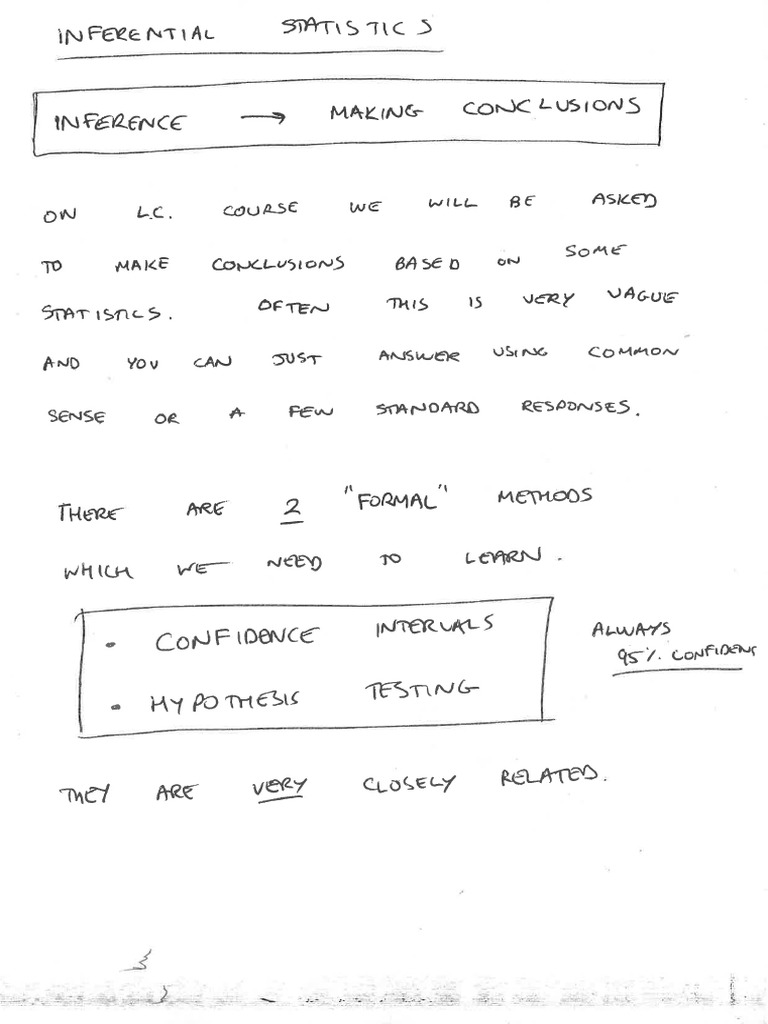 INFERENTIAL STATISTICS
INFERENCE → MAKING CONCLUSIONS
ON L.C. COURSE WE WILL BE ASKED
TO MAKE CONCLUSIONS BASED ON SOME
STATISTICS. OFTEN THIS IS VERY VAGUE
AND YOU CAN JUST ANSWER USING COMMON
SENSE OR A FEW STANDARD RESPONSES.
THERE ARE 2 "FORMAL" METHODS
WHICH WE NEED TO LEARN.
• CONFIDENCE INTERVALS
• HYPOTHESIS TESTING
ALWAYS
95% CONFIDENC
THEY ARE VERY CLOSELY RELATED.